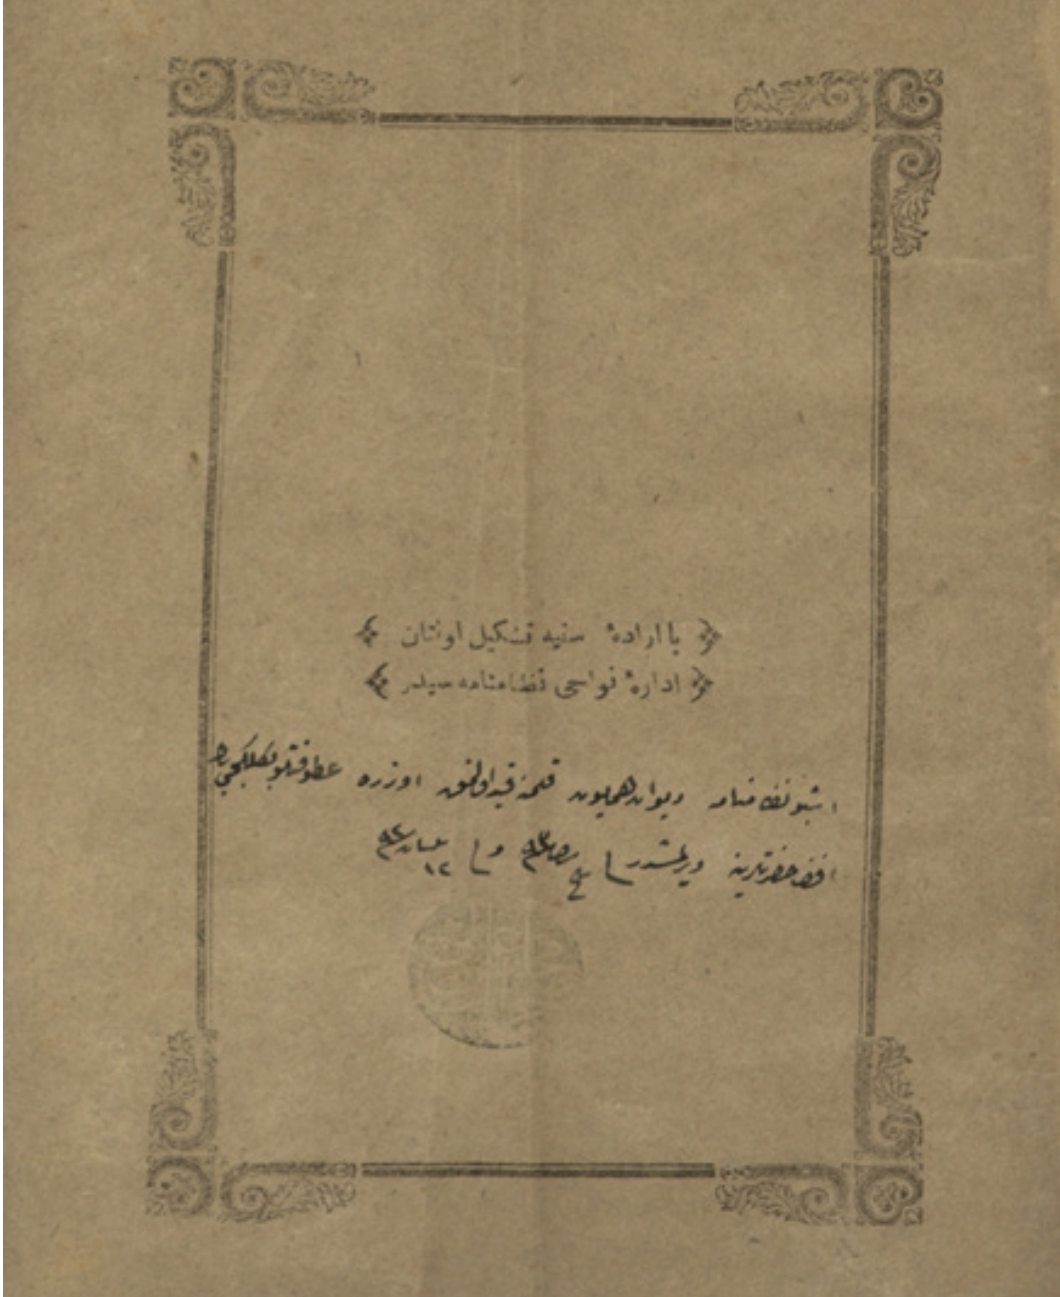 با ارادهٔ سنیه تشکیل اولنان
ادارهٔ نواحی نظامنامه سیدر
اشبو نظامنامه دیوان همایون قلمنه قید اولنمق اوزره عطوفتلو بکلکجی
افندی حضرتلرینه ویرلمشدر